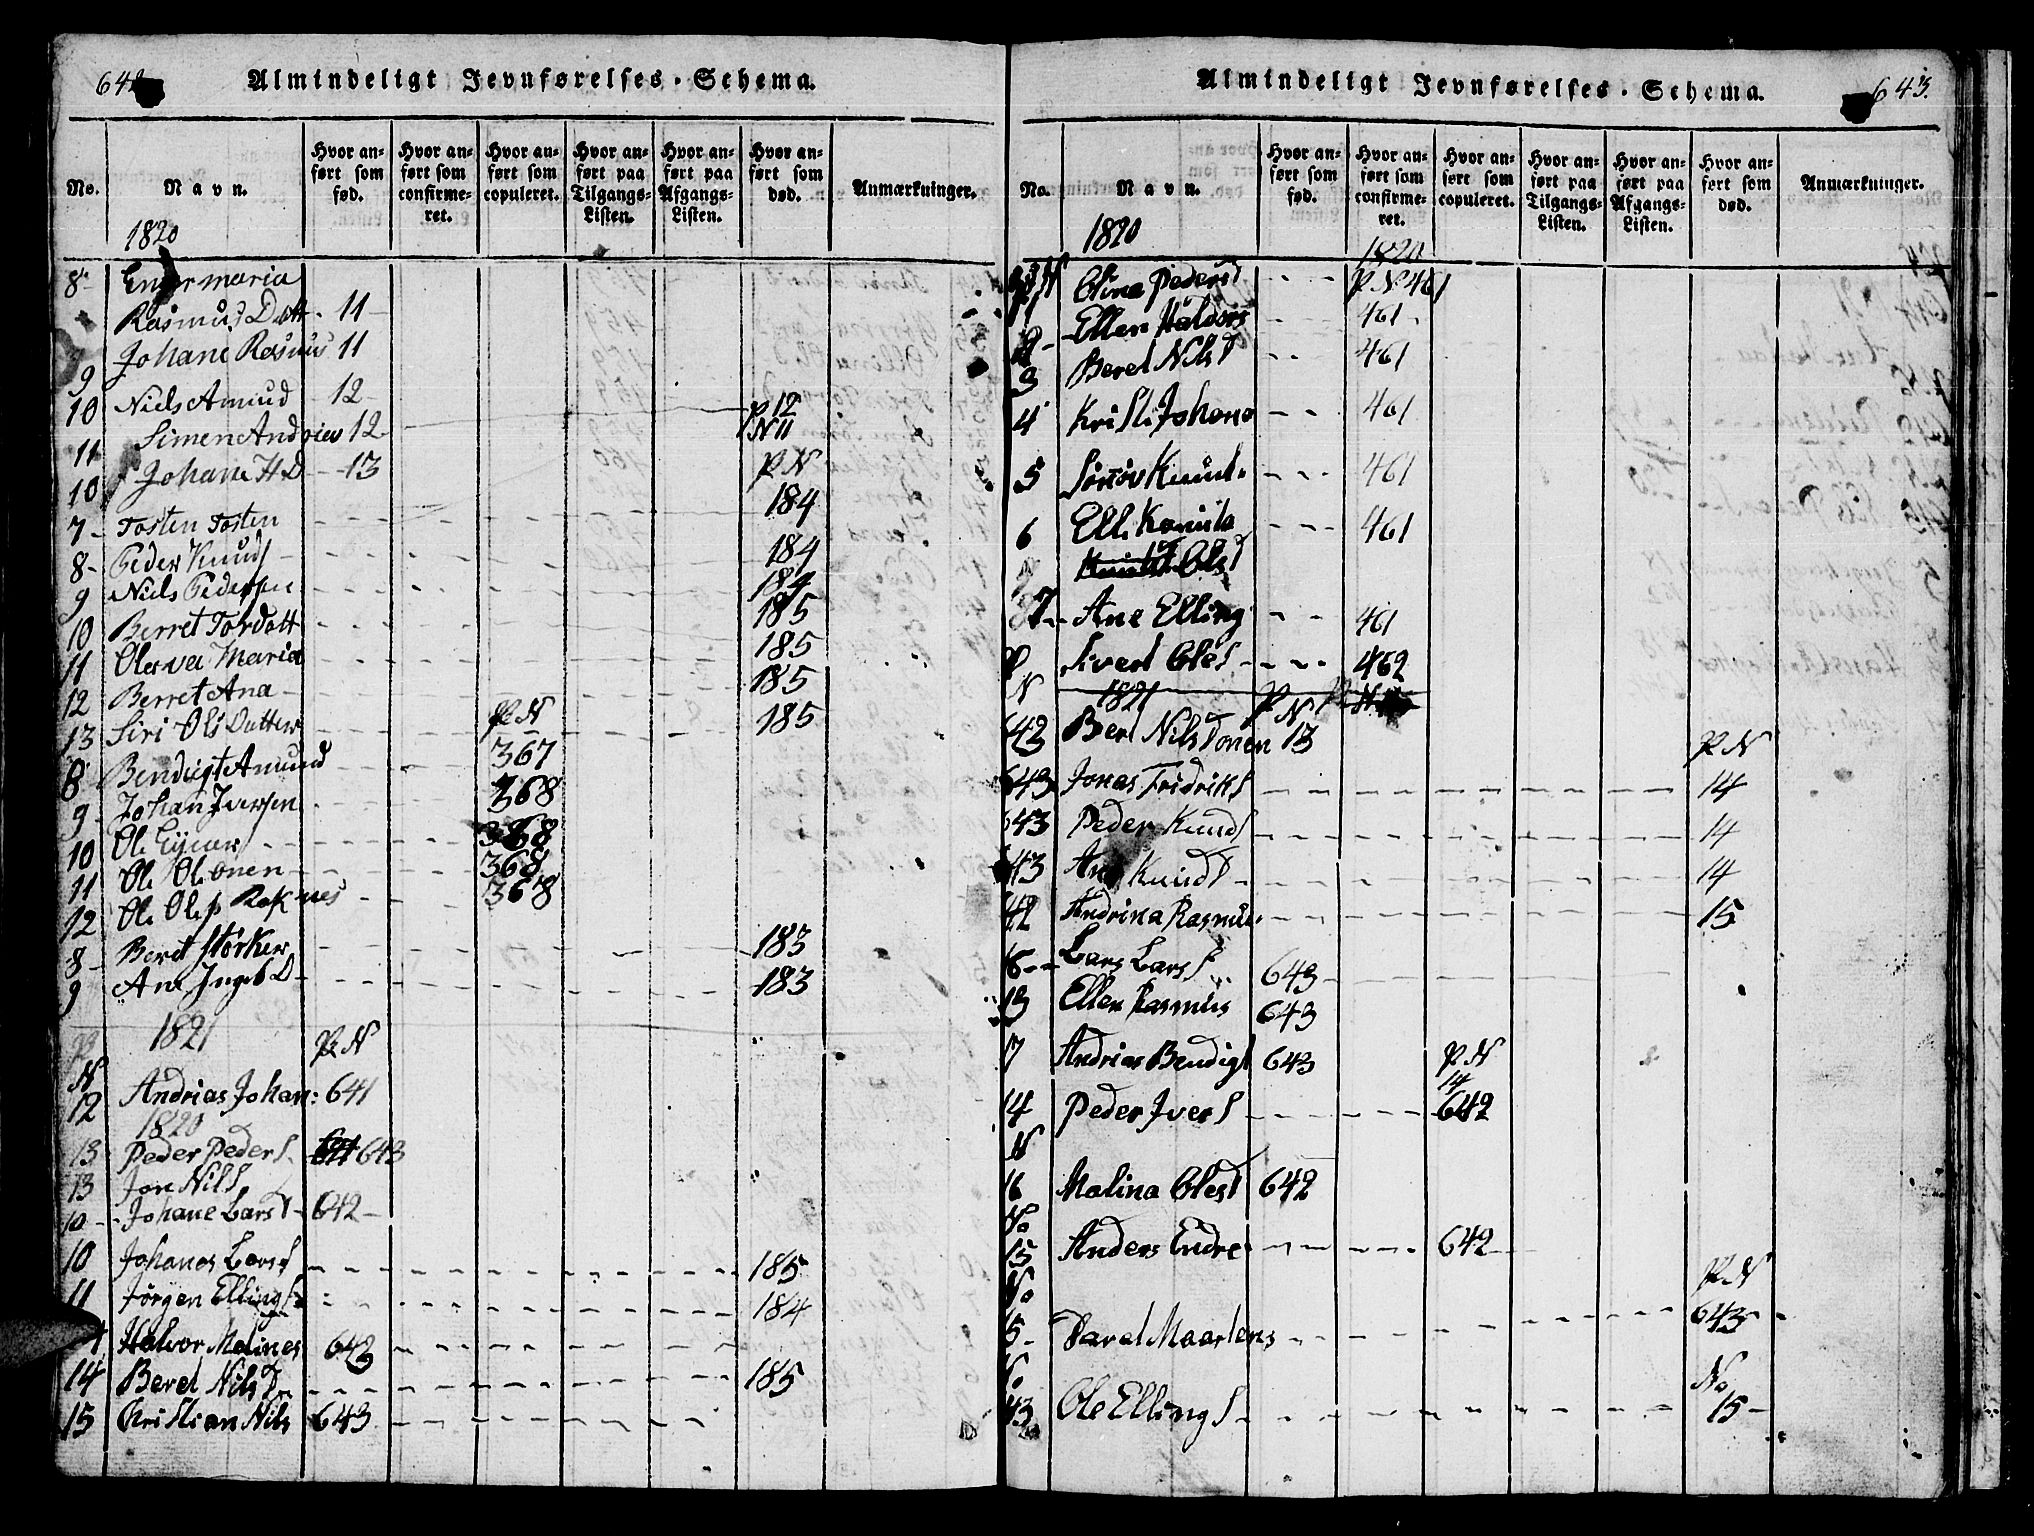 642
Almindeligt Jevnførelses-Schema.
No.
Navn.
Hvor an-
ført som
fød.
Hvor an-
ført som
confirme-
ret.
Hvor an-
ført som
copuleret.
Hvor an-
ført paa
Tilgangs-
Listen.
Hvor an-
ført paa
Afgangs-
Listen.
Hvor an-
ført som
død.
Anmærkninger.
1820
8 Engermaria
Rasmus Datt. 11
9 Johane Rasmus 11
10 Niels Amund 12
11 Simen Andries 12 P 12 N 11
10 Johane H D 13 P N
7 Tosten Tosten 184
8 Peder Knuds 184
9 Niels Pedersen 184
10 Berret Tordatt 185
11 Oleva Maria 185
12 Berret Ana 185
13 Siri Ols Datter P N 185
8 Bendigt Amund 367
9 Johan Iversen 368
10 Ole Ejnar 368
11 Ole Ol onen 368
12 Ole Ols Raknes 368
8 Beret Störker 183
9 Ane Ingeb D 183
1821 P N
N
12 Andrias Johan: 641
1820
13 Peder Peders 643
13 Jon Nils
10 Johane Lars D 642
10 Johanes Lars S 185
11 Jörgen Ellings 184
Halvor Malines 642
14 Beret Nils D 185
15 Christian Nils 643
643.
Almindeligt Jevnførelses-Schema.
No.
Navn.
Hvor an-
ført som
fød.
Hvor an-
ført som
confirme-
ret.
Hvor an-
ført som
copuleret.
Hvor an-
ført paa
Tilgangs-
Listen.
Hvor an-
ført paa
Afgangs-
Listen.
Hvor an-
ført som
død.
Anmærkninger.
1820 1820
Olina Peders D P N 461
Ellen Halvors 461
3 Beret Nils D 461
4 Kristi Johano 461
5 Siriov Knud 461
6 Elli Kornila 461
Ols D
7 Ane Elling 461
P Sivert Oles 462
N 1821 P N
642 Beret Nils D onen 13 P N
643 Jonas Fridriks 14
643 Peder Knuds 14
43 Ane Knuds 14
42 Andrina Rasmus 15
16 Lars Lars S 643
19 Ellen Rasmus 643
17 Andrias Bendigt 643 P N
14
14 Peder Ivers 642
N
16 Malina Oles D 642
No
15 Anders Endre 642
No P N
15 Parel Maartens 643
No No
43 Ole Ellings 15